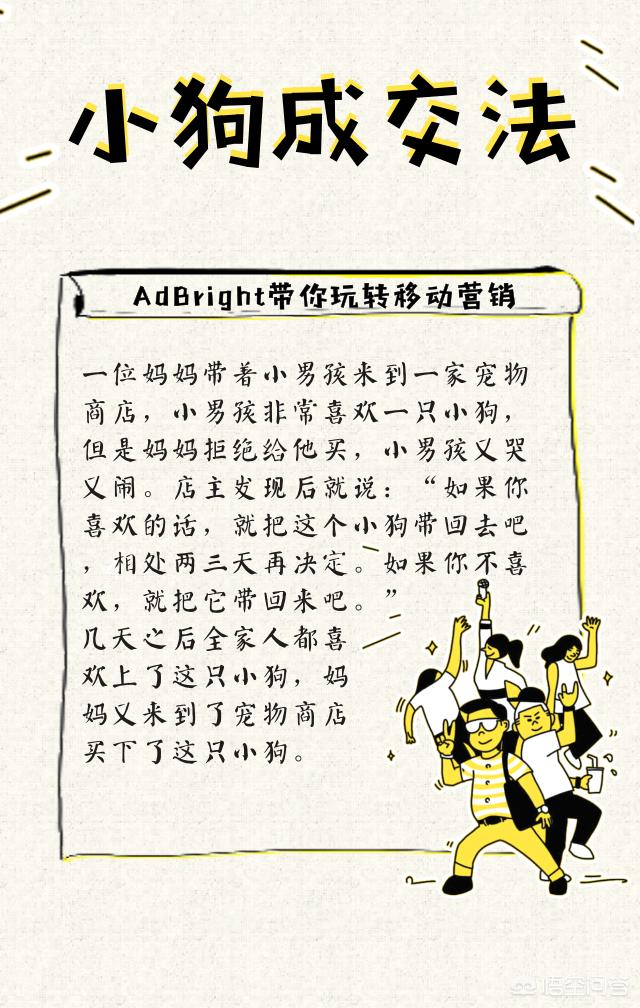 小狗成交法
AdBright带你玩转移动营销
一位妈妈带着小男孩来到一家宠物
商店，小男孩非常喜欢一只小狗，
但是妈妈拒绝给他买，小男孩又哭
又闹。店主发现后就说：“如果你
喜欢的话，就把这个小狗带回去吧
，相处两三天再决定。如果你不喜
欢，就把它带回来吧。”
几天之后全家人都喜
欢上了这只小狗，妈
妈又来到了宠物商店
买下了这只小狗。
悟空问答